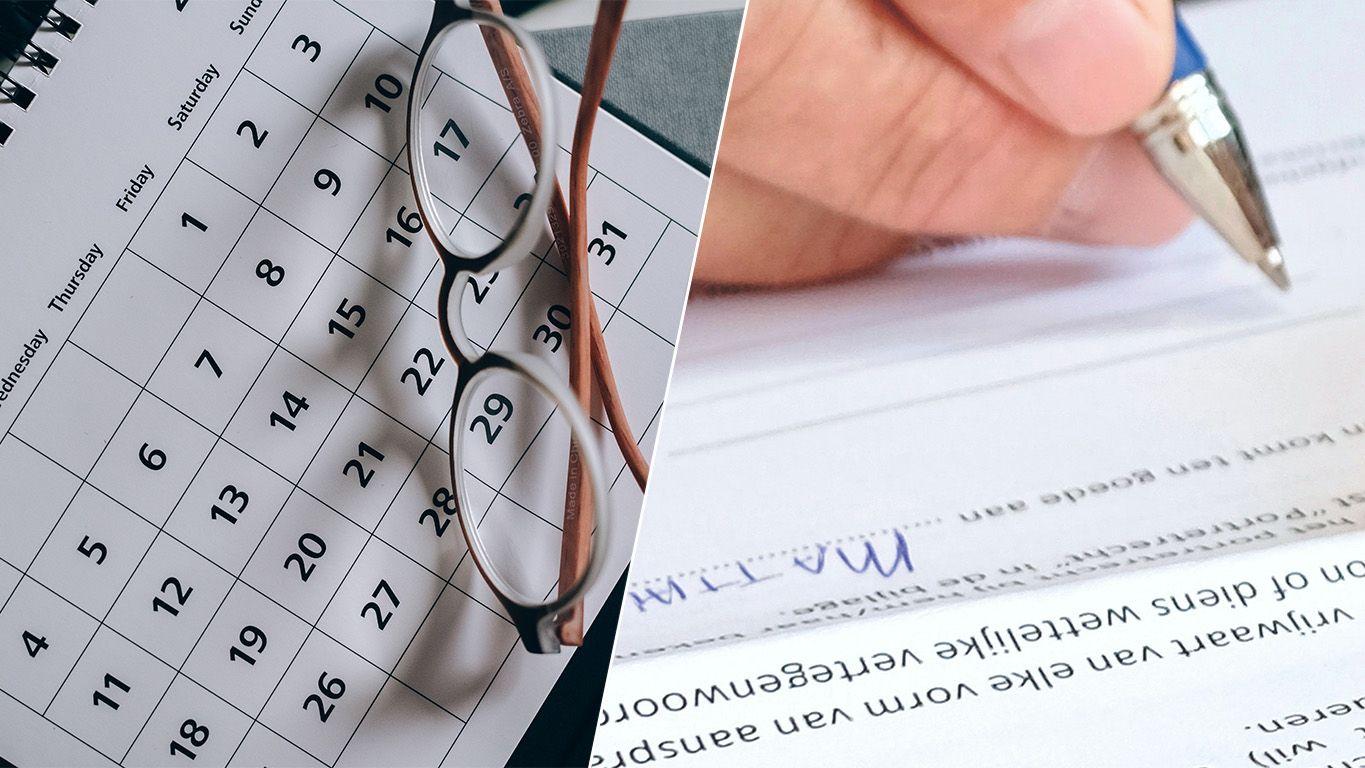 ednesday Thursday Friday Saturday Sund
1 2 3
4 5 6 7 8 9 10
11 12 13 14 15 16 17
18 19 20 21 22 23
26 27 28 29 30 31
Made in
wil)
ueren.
vrijwaart van elke vorm van aanspra
on of diens wettelijke vertegenwoord
"Portretrecht" in de bijlage.
komt ten goede aan ....MATTHI